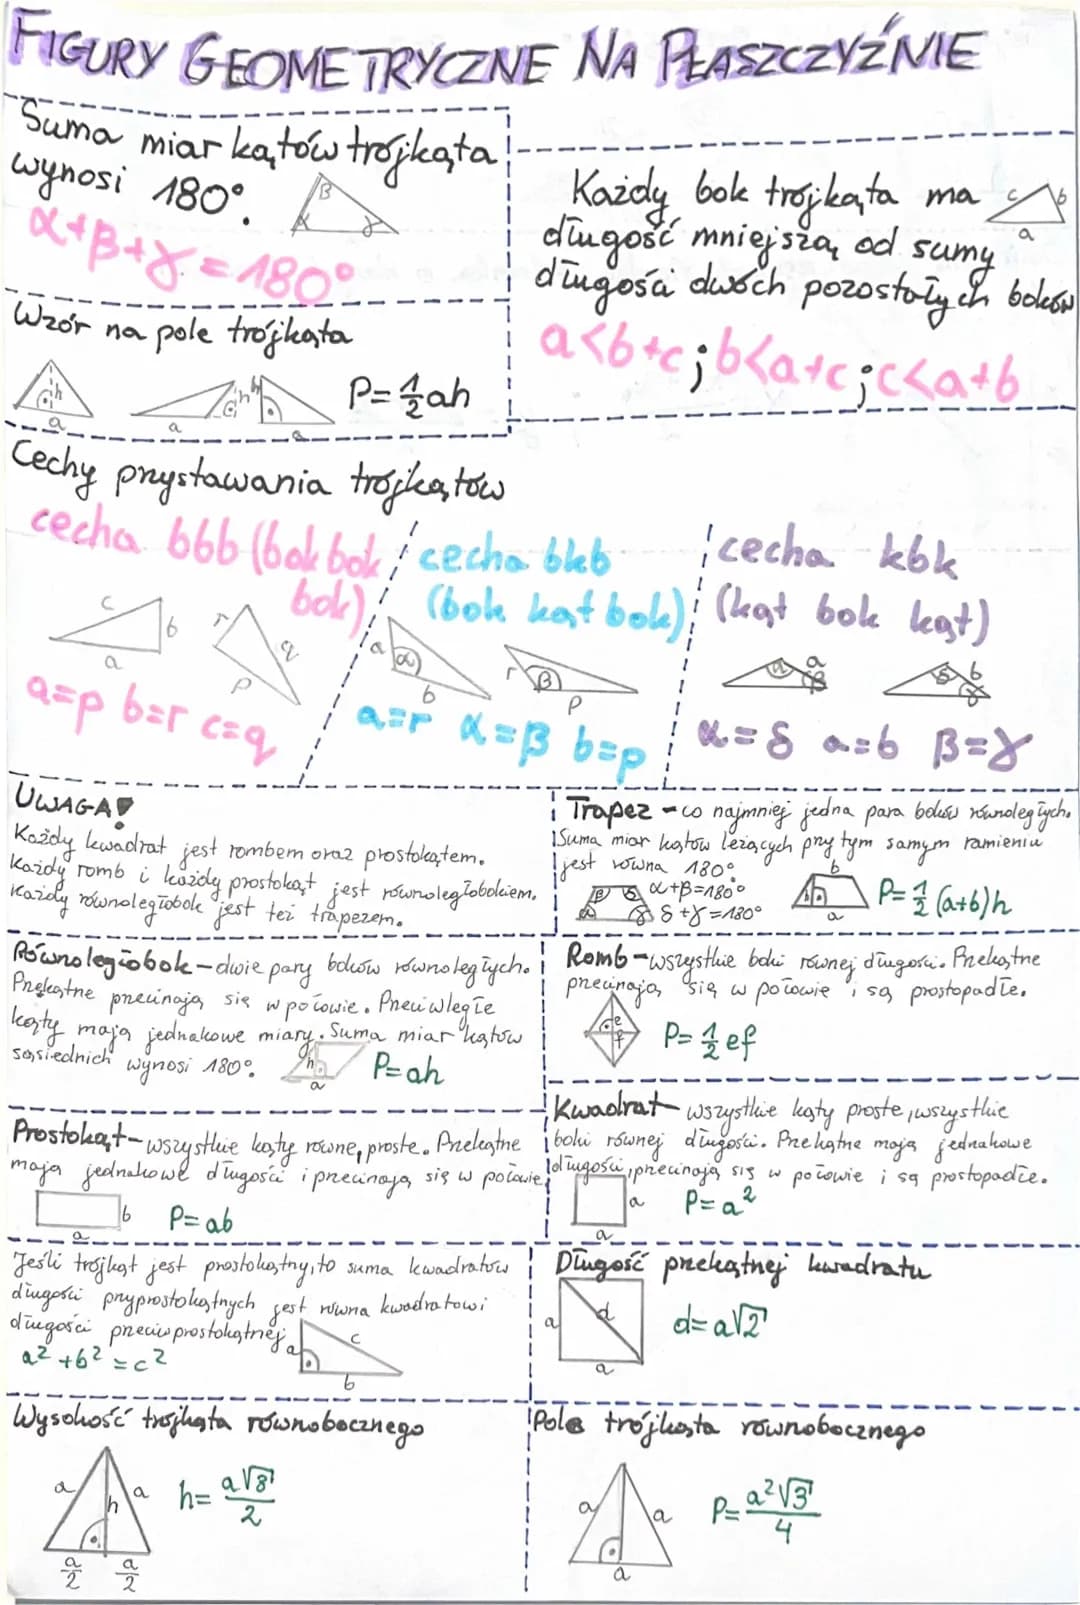 FIGURY GEOMETRYCZNE NA PŁASZCZYŹNIE
Suma miar kątów trójkąta
wynosi 180°.
β
α γ
α+β+γ=180°
Każdy bok trójkąta ma
długość mniejszą od sumy
długości dwóch pozostałych boków
c b
a
a<b+c;b<a+c;c<a+b
Wzór na pole trójkąta
h h h
a a a
P=½ah
Cechy przystawania trójkątów
cecha bbb (bok bok
bok)
c b r q
a p
a=p b=r c=q
cecha bkb
(bok kąt bok)
a α r β
b p
a=r α=β b=p
cecha kbk
(kąt bok kąt)
α a δ b
β γ
α=δ a=b β=γ
UWAGA!
Każdy kwadrat jest rombem oraz prostokątem.
Każdy romb i każdy prostokąt jest równoległobokiem.
Każdy równoległobok jest też trapezem.
Trapez - co najmniej jedna para boków równoległych.
Suma miar kątów leżących przy tym samym ramieniu
jest równa 180°.
β δ α+β=180°
α γ δ+γ=180°
b
h
a
P=½(a+b)h
Równoległobok - dwie pary boków równoległych.
Przekątne przecinają się w połowie. Przeciwległe
kąty mają jednakowe miary. Suma miar kątów
sąsiednich wynosi 180°.
h
a
P=ah
Romb - wszystkie boki równej długości. Przekątne
przecinają się w połowie i są prostopadłe.
e
f
P=½ef
Prostokąt - wszystkie kąty równe, proste. Przekątne
mają jednakowe długości i przecinają się w połowie.
b
a
P=ab
Kwadrat - wszystkie kąty proste, wszystkie
boki równej długości. Przekątne mają jednakowe
długości, przecinają się w połowie i są prostopadłe.
a
a
P=a²
Jeśli trójkąt jest prostokątny, to suma kwadratów
długości przyprostokątnych jest równa kwadratowi
długości przeciwprostokątnej.
a²+b²=c²
a c
b
Długość przekątnej kwadratu
a d
a
d=a√2
Wysokość trójkąta równobocznego
a h a
a/2 a/2
h=a√3/2
Pole trójkąta równobocznego
a a
a
P=a²√3/4